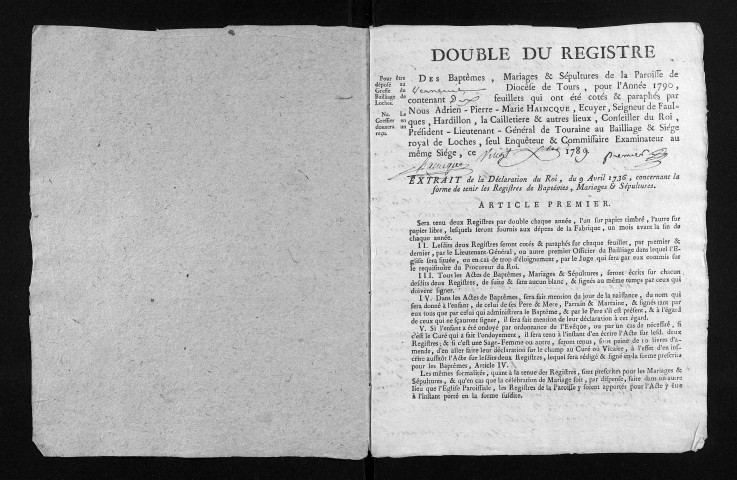 DOUBLE DU REGISTRE
Pour être
déposé au
Greffe du
Bailliage de
Loches.
Na. Le
Greffier en
donnera un
reçu.
DES Baptêmes, Mariages & Sépultures de la Paroisse de
Diocèse de Tours, pour l'Année 1790,
contenant dix feuillets qui ont été cotés & paraphés par
Nous Adrien-Pierre-Marie HAINCQUE, Ecuyer, Seigneur de Faul-
ques, Hardillon, la Cailletiere & autres lieux, Conseiller du Roi,
Président-Lieutenant-Général de Touraine au Bailliage & Siége
royal de Loches, seul Enquêteur & Commissaire Examinateur au
même Siége, ce vingt Xbre 1789
Haincque premier
EXTRAIT de la Déclaration du Roi, du 9 Avril 1736, concernant la
forme de tenir les Registres de Baptêmes, Mariages & Sépultures.
ARTICLE PREMIER.
Sera tenu deux Registres par double chaque année, l'un sur papier timbré, l'autre sur
papier libre, lesquels seront fournis aux dépens de la Fabrique, un mois avant la fin de
chaque année.
II. Lesdits deux Registres seront cotés & paraphés sur chaque feuillet, par premier &
dernier, par le Lieutenant-Général, ou autre premier Officier du Bailliage dans lequel l'E-
glise sera située, ou en cas de trop d'éloignement, par le Juge qui sera par eux commis sur
le requisitoire du Procureur du Roi.
III. Tous les Actes de Baptêmes, Mariages & Sépultures, seront écrits sur chacun
desdits deux Registres, de suite & sans aucun blanc, & signés au même temps par ceux qui
doivent signer.
IV. Dans les Actes de Baptêmes, sera fait mention du jour de la naissance, du nom qui
sera donné à l'enfant, de celui de ses Pere & Mere, Parrain & Marraine, & signés tant par
eux tous que par celui qui administrera le Baptême, & par le Pere s'il est présent, & à l'égard
de ceux qui ne sçauront signer, il sera fait mention de leur déclaration à cet égard.
V. Si l'enfant a été ondoyé par ordonnance de l'Evêque, ou par un cas de nécessité, si
c'est le Curé qui a fait l'ondoyement, il sera tenu à l'instant d'en écrire l'Acte sur lesd. deux
Registres; & si c'est une Sage-Femme ou autre, seront tenus, sous peine de 10 livres d'a-
mende, d'en aller faire leur déclaration sur le champ au Curé ou Vicaire, à l'effet d'en ins-
crire aussitôt l'Acte sur lesdits deux Registres, lequel sera rédigé & signé en la forme prescrite
pour les Baptêmes, Article IV.
Les mêmes formalités, quant à la tenue des Registres, sont prescrites pour les Mariages &
Sépultures, & qu'en cas que la célébration de Mariage soit, par dispense, faite dans un autre
lieu que l'Eglise Paroissiale, les Registres de la Paroisse y seront apportés pour l'Acte y être
à l'instant porté en la forme susdite.